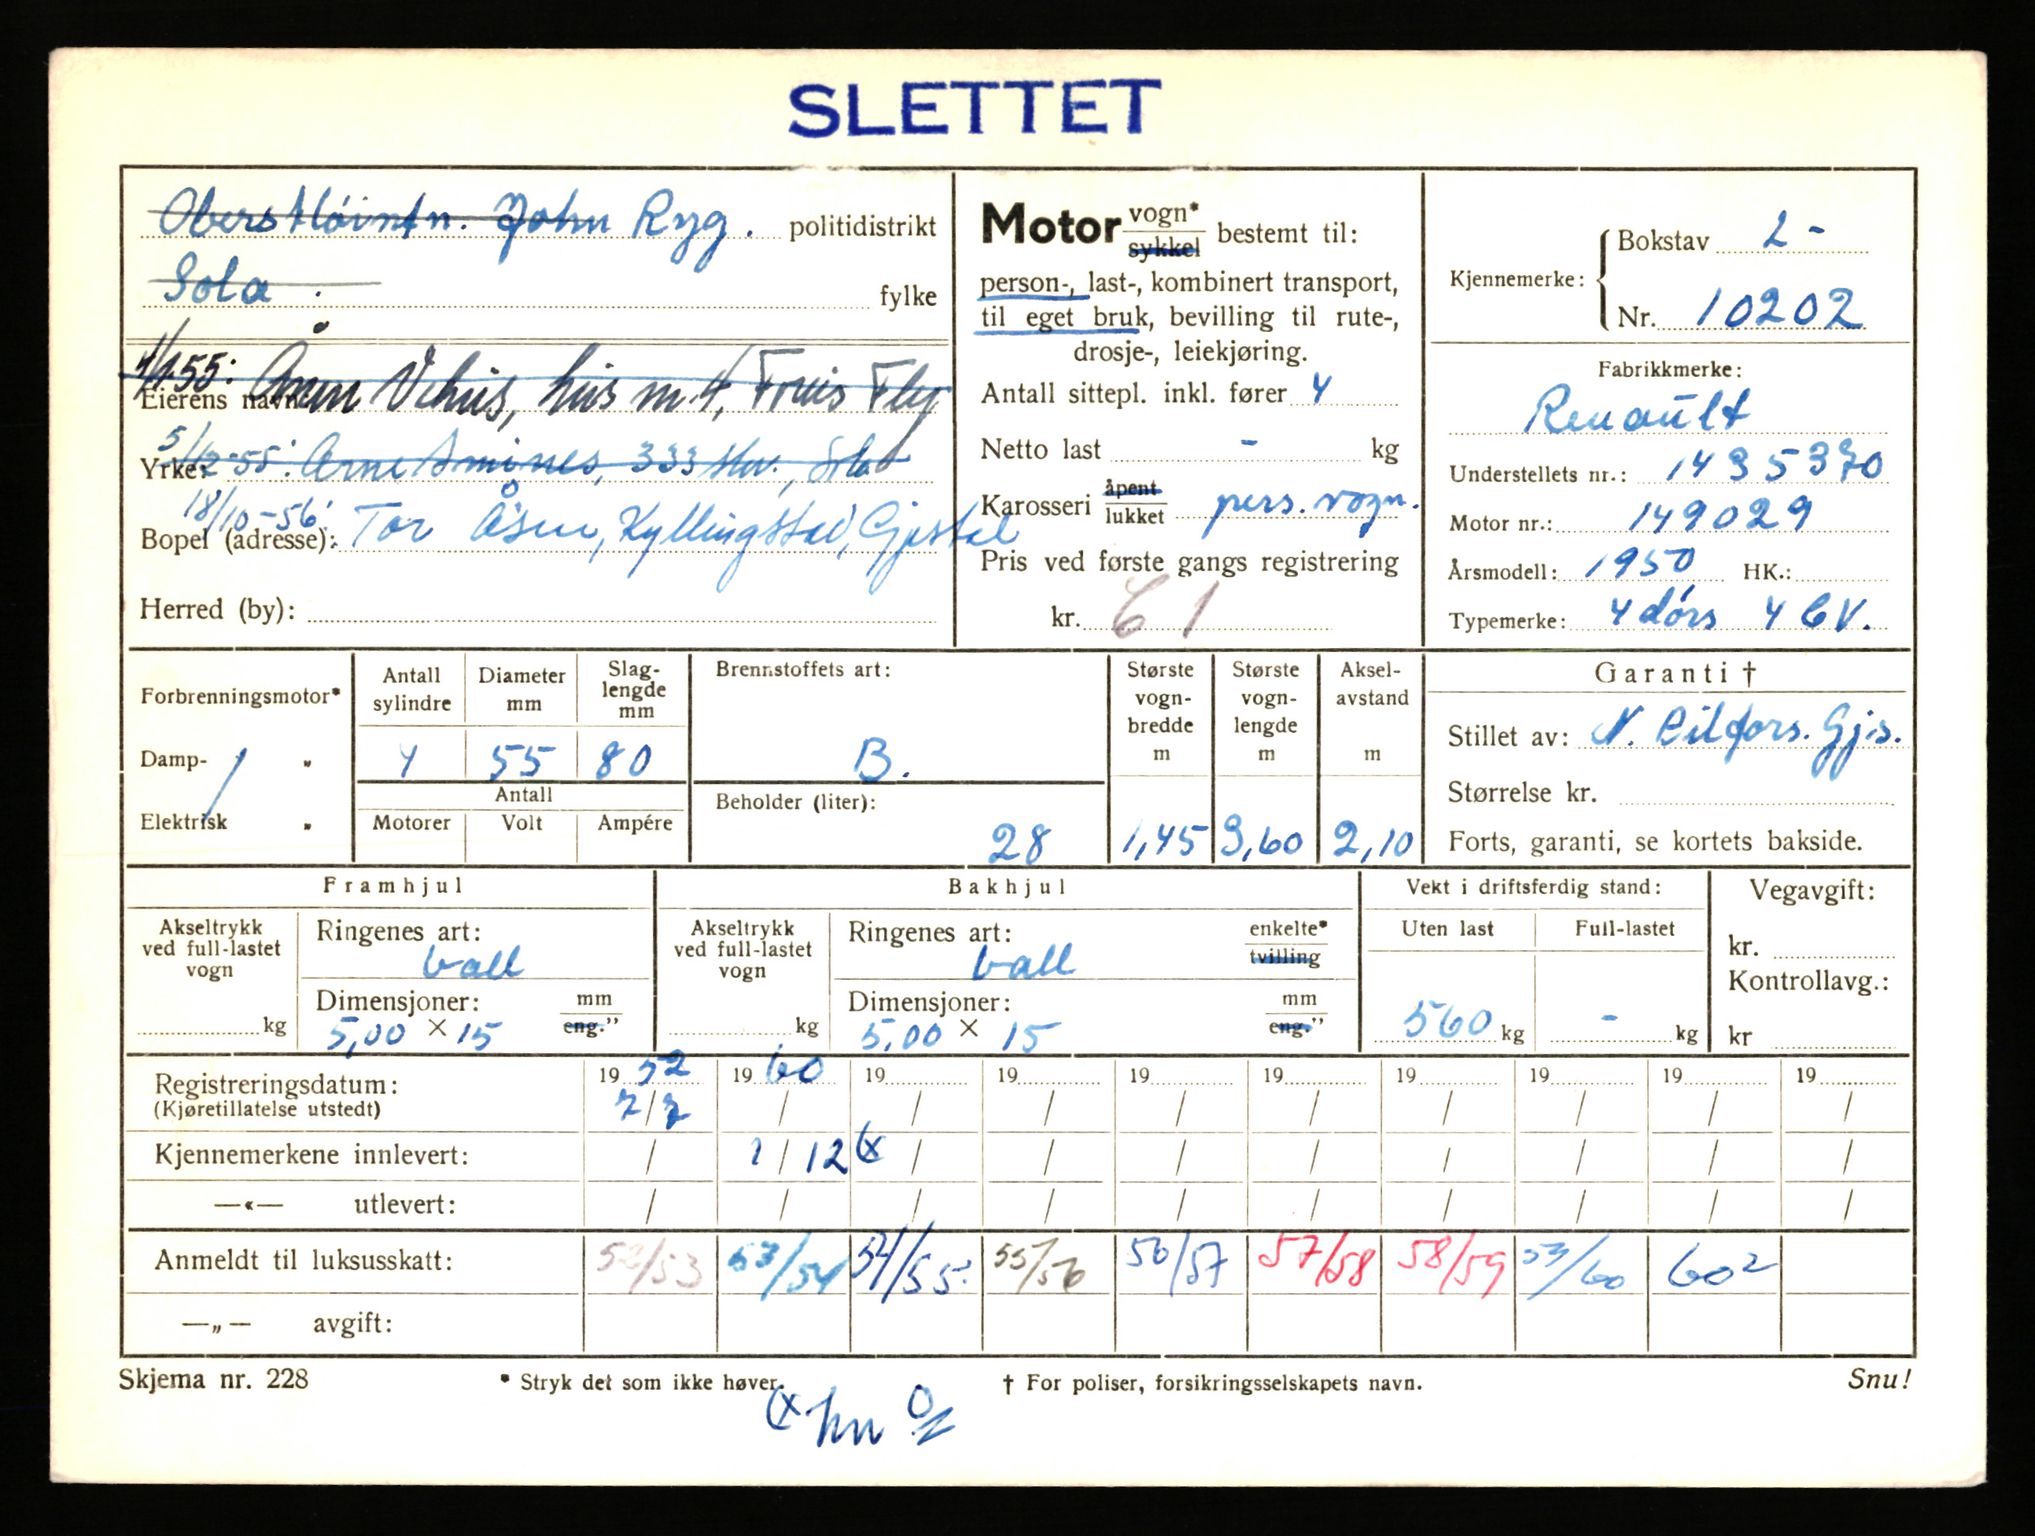 SLETTET
Oberstløintn. John Ryg. politidistrikt
Sola. fylke
1/4 55: Vehus, hus m. 4, Fly
Eierens navn
5/12-55: Arne 333 skv., Sola
Yrke:
18/10-56: Tor Åsen, Kyllingstad, Gjestal
Bopel (adresse):
Herred (by):
Motor vogn* sykkel bestemt til:
person-, last-, kombinert transport,
til eget bruk, bevilling til rute-,
drosje-, leiekjøring.
Antall sittepl. inkl. fører 4
Netto last - kg
Karosseri åpent lukket pers. vogn.
Pris ved første gangs registrering
kr. 61
Kjennemerke: Bokstav L-
Nr. 10202
Fabrikkmerke:
Renault
Understellets nr.: 1435370
Motor nr.: 149029
Årsmodell: 1950 HK.:
Typemerke: 4 dörs 4 CV.
Forbrenningsmotor*
Damp- "
Elektrisk "
Antall sylindre
Diameter mm
Slag-lengde mm
4 55 80
Antall
Motorer Volt Ampére
Brennstoffets art:
B.
Beholder (liter):
28
Største vogn-bredde m
1,45
Største vogn-lengde m
3,60
Aksel-avstand m
2,10
Garanti †
Stillet av: N. Bilfors. Gjs.
Størrelse kr.
Forts, garanti, se kortets bakside.
Framhjul
Akseltrykk ved full-lastet vogn
kg
Ringenes art:
ball
Dimensjoner: mm eng."
5,00 × 15
Bakhjul
Akseltrykk ved full-lastet vogn
kg
Ringenes art: enkelte* tvilling
ball
Dimensjoner: mm eng."
5,00 × 15
Vekt i driftsferdig stand:
Uten last Full-lastet
560 kg - kg
Vegavgift:
kr.
Kontrollavg.:
kr
Registreringsdatum: 19 52 19 60 19 19 19 19 19 19 19 19
(Kjøretillatelse utstedt) 7/7 / / / / / / / / /
Kjennemerkene innlevert: / 1/12 (x / / / / / / / /
—«— utlevert: / / / / / / / / / /
Anmeldt til luksusskatt: 52/53 53/54 54/55 55/56 56/57 57/58 58/59 53/60 60²
—„— avgift:
Skjema nr. 228 * Stryk det som ikke høver. † For poliser, forsikringsselskapets navn. Snu!